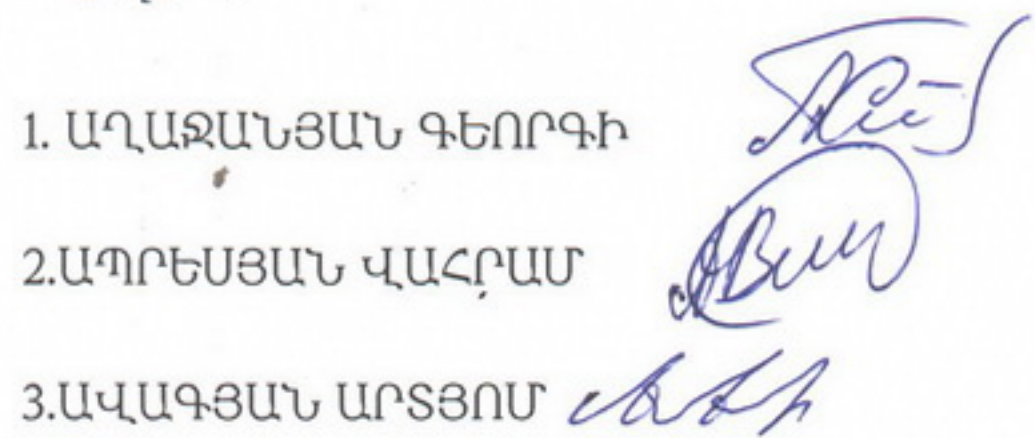 1. ԱՂԱՋԱՆՅԱՆ ԳԵՈՐԳԻ
2.ԱՊՐԵՍՅԱՆ ՎԱՀՐԱՄ
3.ԱՎԱԳՅԱՆ ԱՐՏՅՈՄ